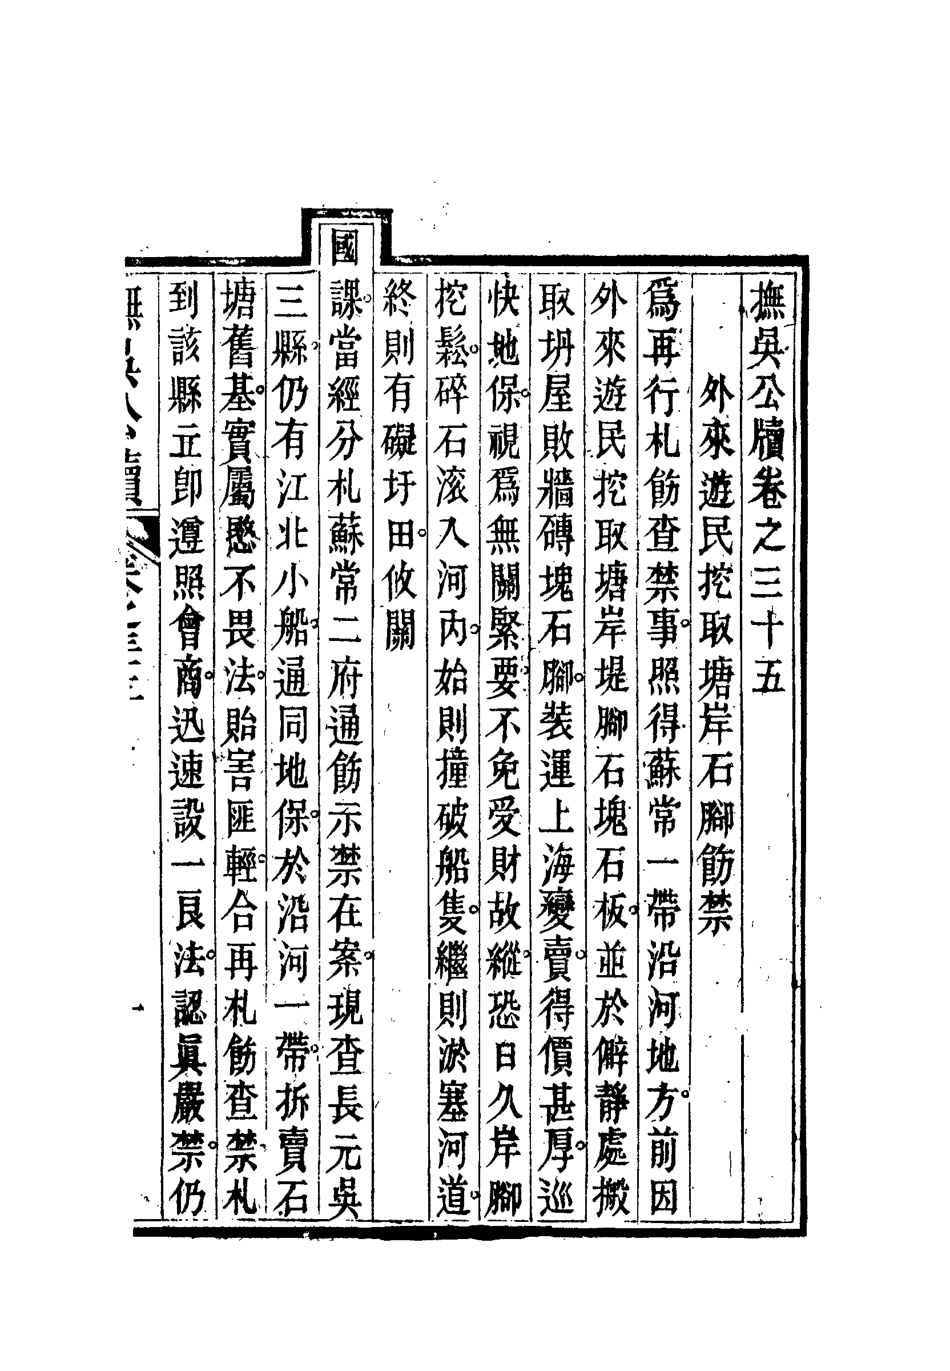 撫吳公牘卷之三十五
外來遊民挖取塘岸石腳飭禁
爲再行札飭查禁事照得蘇常一帶沿河地方前因
外來遊民挖取塘岸堤腳石塊石板並於僻靜處搬
取坍屋敗牆磚塊石腳裝運上海變賣得價甚厚巡
快地保視爲無關緊要不免受財故縱恐日久岸腳
挖鬆碎石滚入河內始則撞破船隻繼則淤塞河道
終則有礙圩田攸關
國課當經分札蘇常二府通飭示禁在案現查長元吳
三縣仍有江北小船通同地保於沿河一帶拆賣石
塘舊基實屬愍不畏法貽害匪輕合再札飭查禁札
到該縣立即遵照會商迅速設一良法認眞嚴禁仍
撫吳公牘 卷之三十五 一